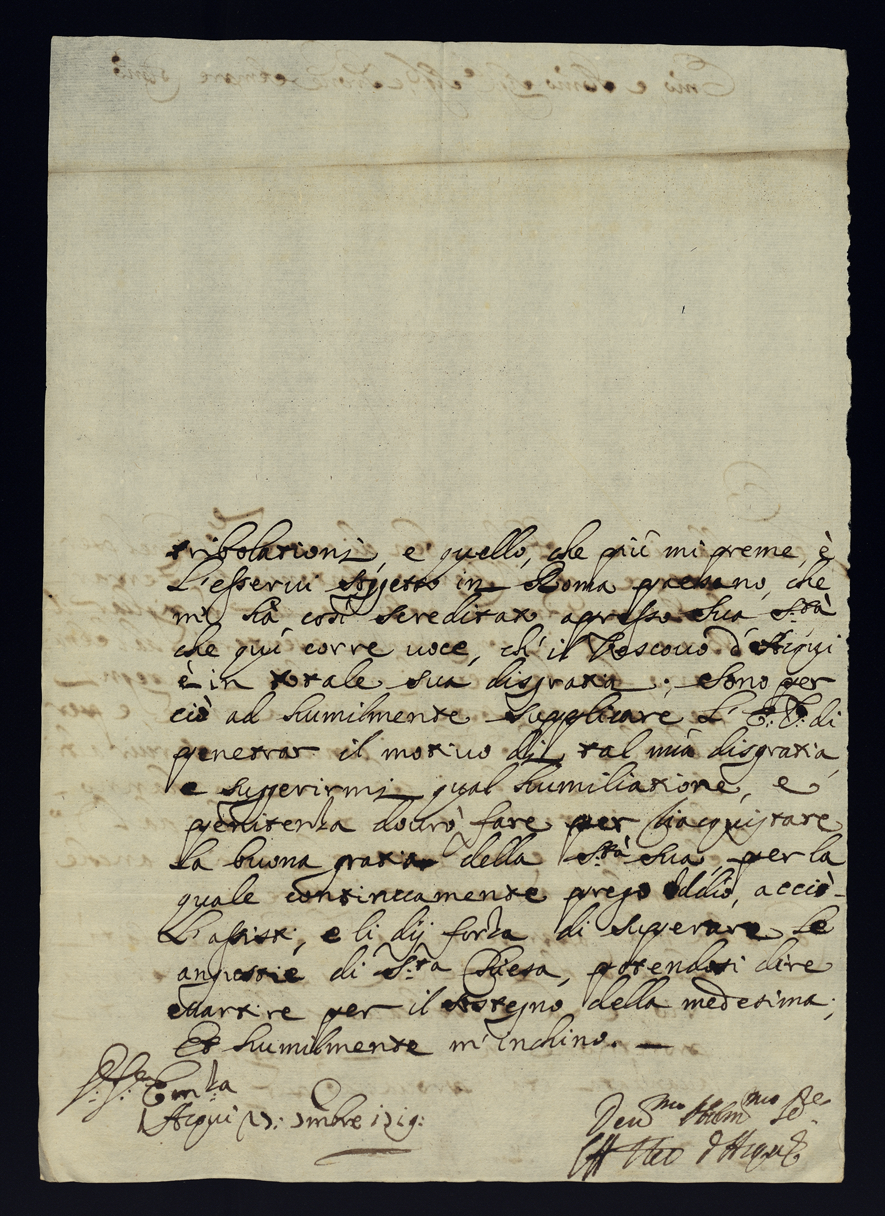 tribolationi, e quello, che più mi preme, è
L'esservi sogetto in Roma pretiano, che
mi hà così sereditat apresso sua S.tà
che qui corre uoce, ch'il Vescouo d'Acqui
è in totale sua disgratia; sono per
ciò ad humilmente supplicare L'E.V. di
penetrar il motiuo di tal mia disgratia,
e sugerirmi qual humiliatione, e
penitenza dourò fare per riacquistare
la buona gratia della S.tà sua per la
quale continuamente prego Iddio, acciò
L'assist, e li dij forza di superare le
angustie di S.ta Chiesa, potendosi dire
Martire per il sostegno della medesima;
Et humilmente m'inchino. —
Em.za
Acqui 1719:
Deu.mo Humil.mo Se.re
d'Acqui